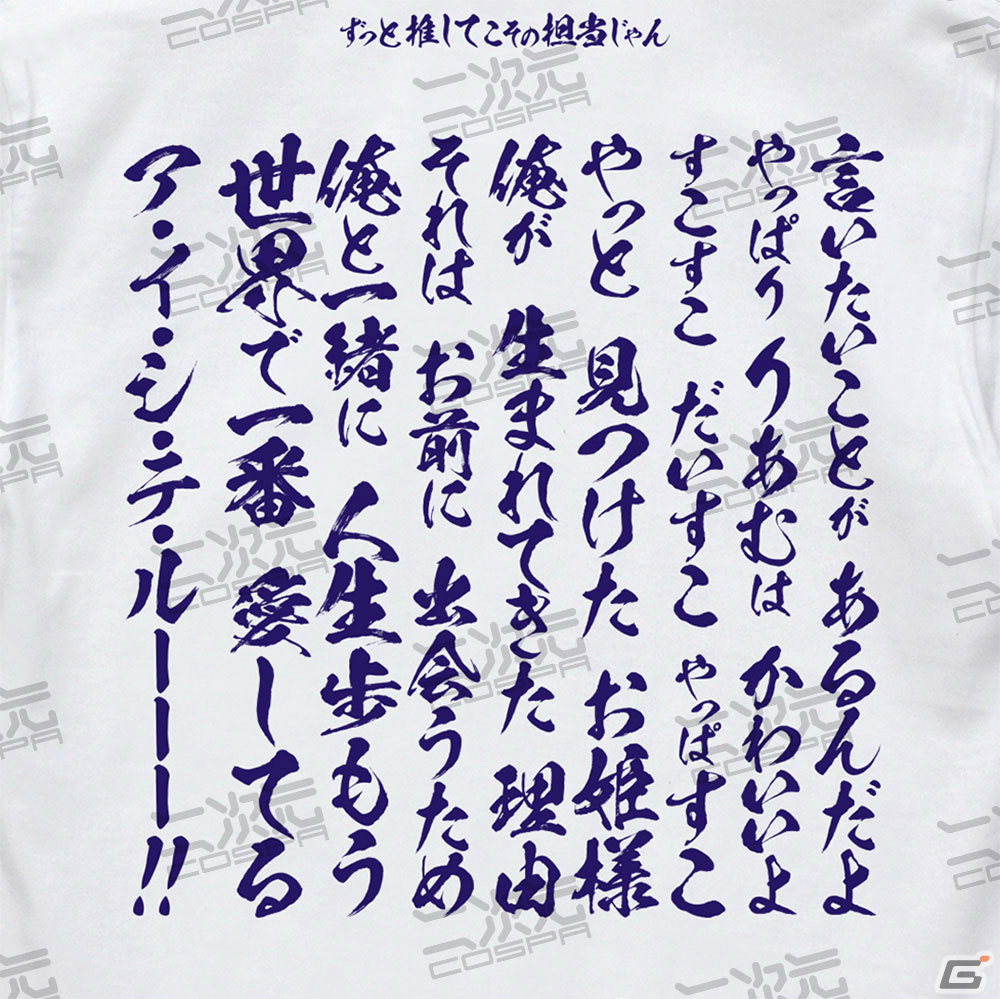 ずっと推してこその担当じゃん
言いたいことが あるんだよ
やっぱり りあむは かわいいよ
すこすこ だいすこ やっぱすこ
やっと 見つけた お姫様
俺が 生まれてきた 理由
それは お前に 出会うため
俺と一緒に 人生歩もう
世界で一番 愛してる
ア・イ・シ・テ・ルーーーー!!
二次元
COSPA
G